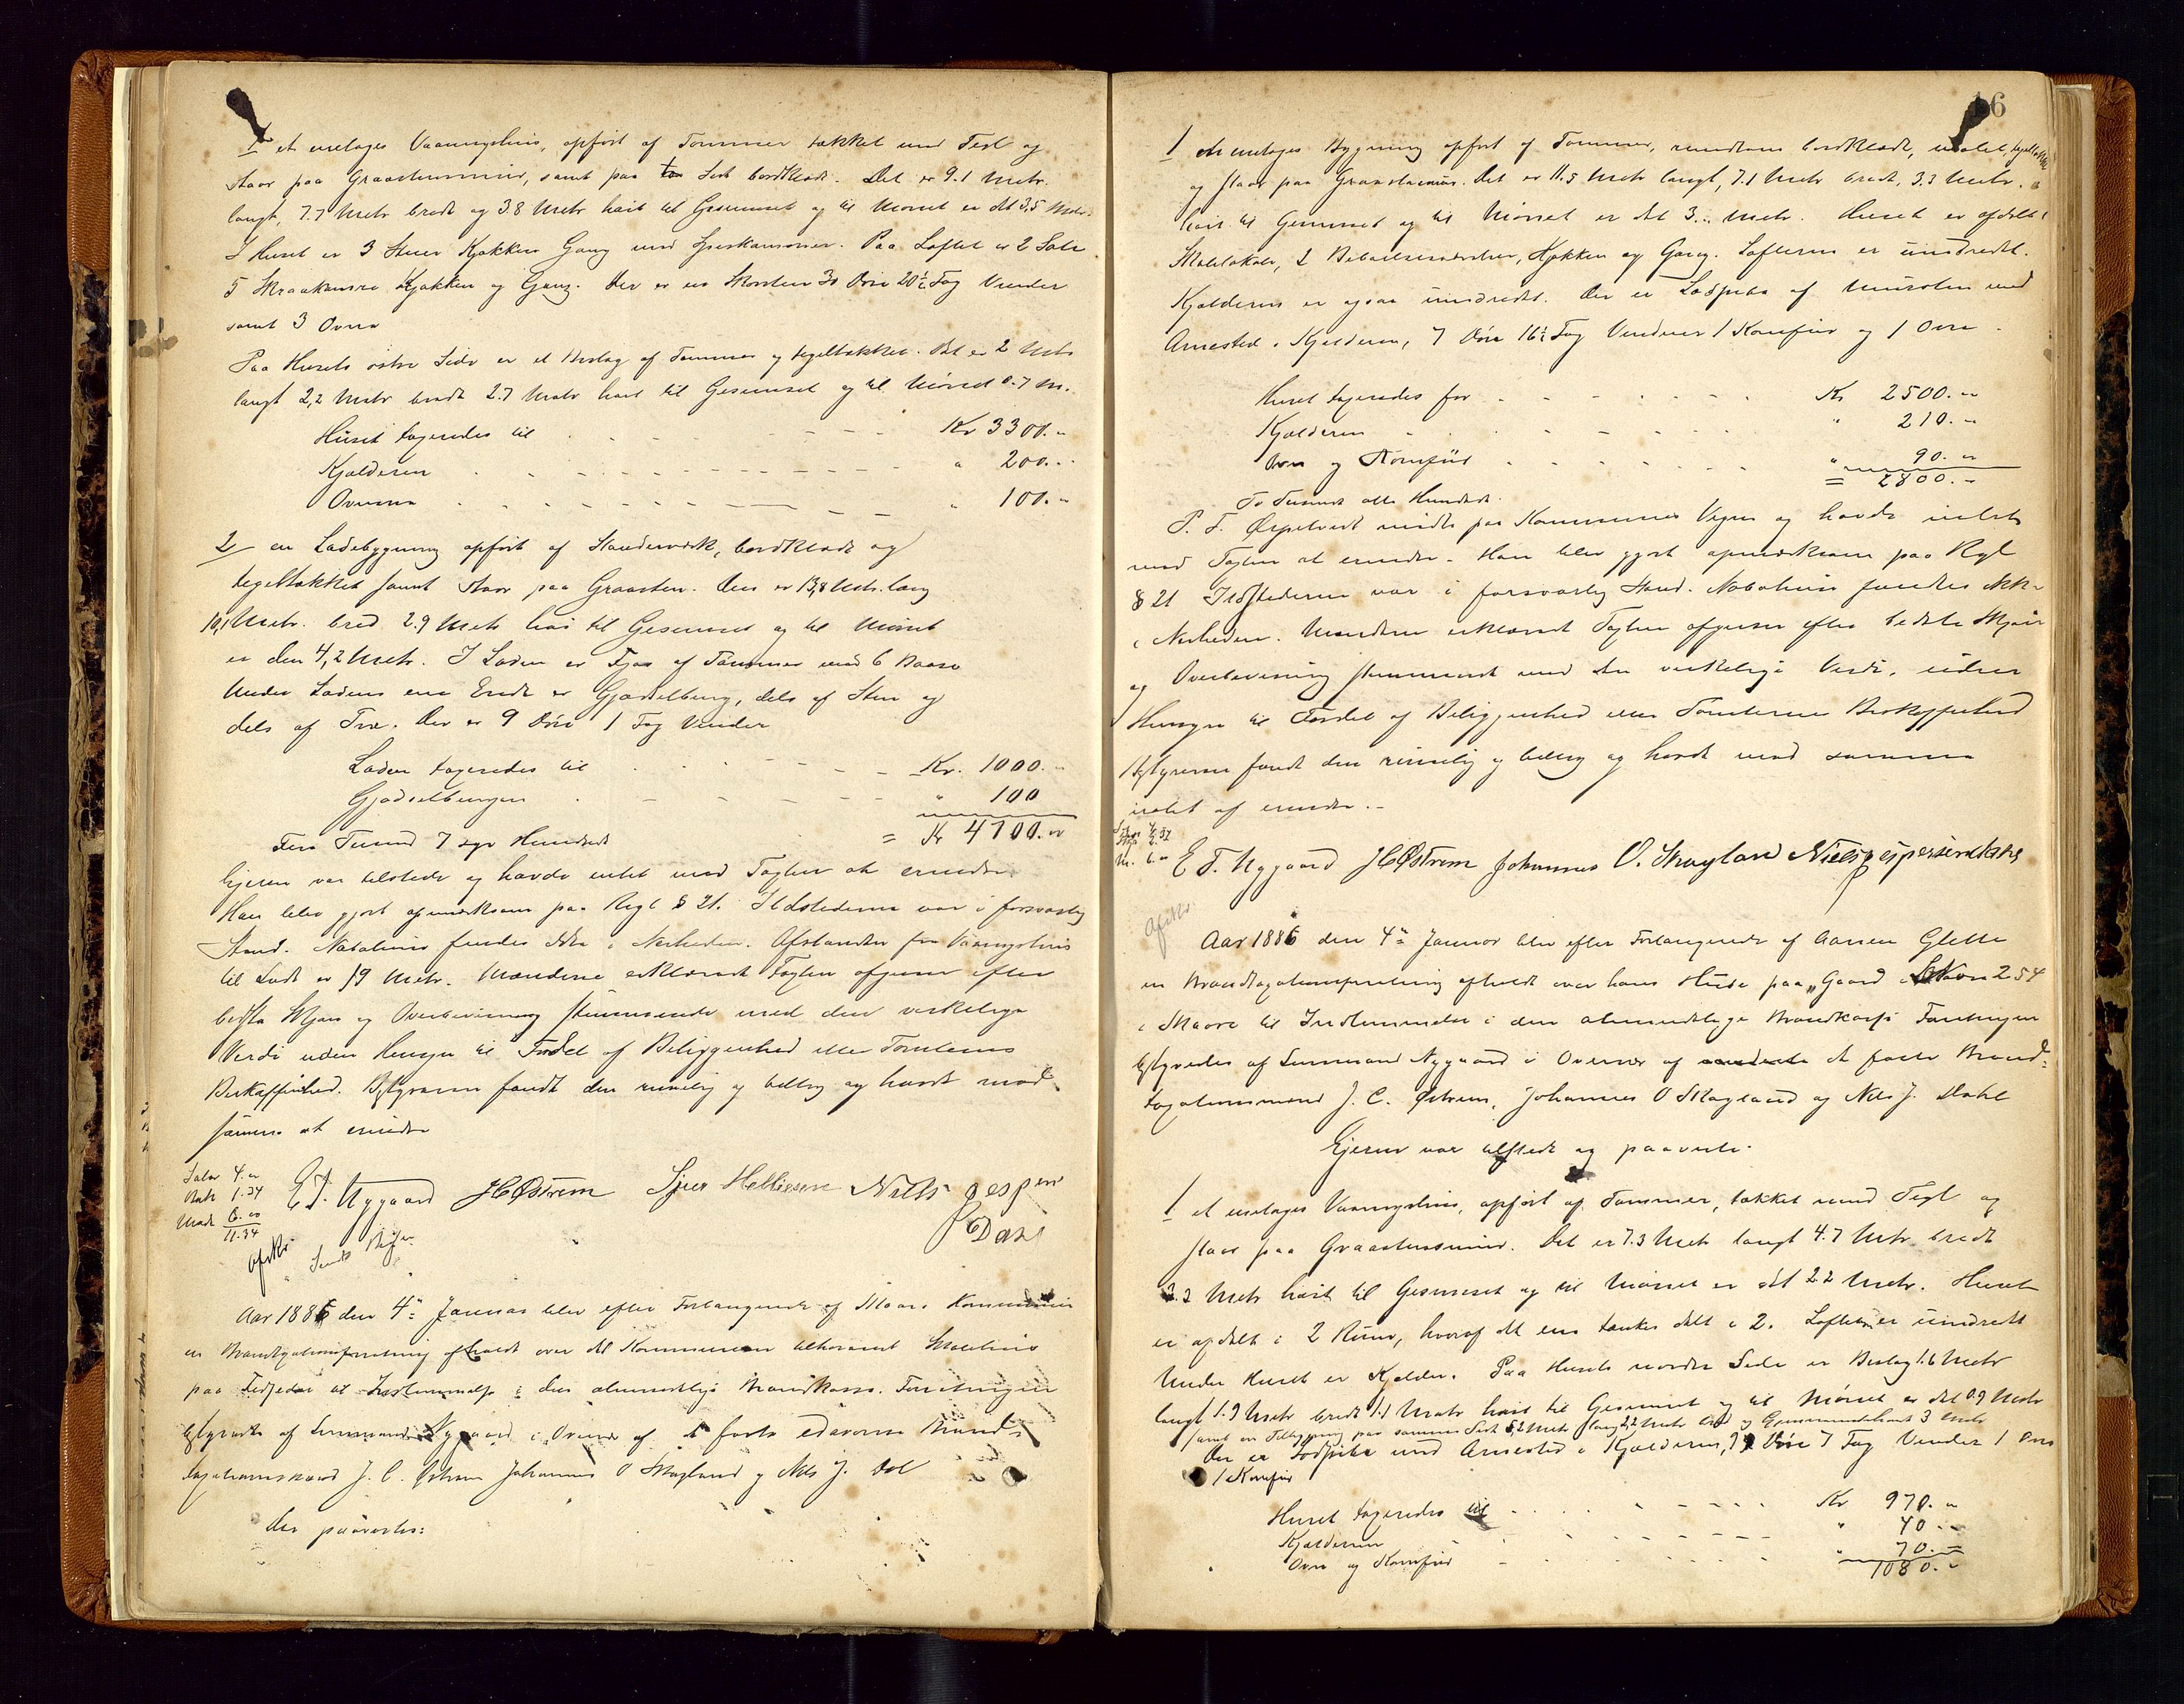 1 et enetages Vaaningshus, opført af Tømmer tækket med Tegl og
staar paa Graastensmur, samt paa Sid bordklædt. Det er 9.1 Metr.
langt, 7.7 Metr bredt og 3.8 Metr høit til Gesimset og til Mønet er det 3,5 Metr.
I Huset er 3 Stuer Kjøkken Gang med Spiskammer. Paa Loftet er 2 Sale
5 Skraakamre Kjøkken og Gang. Der er en Skorsten 30 Døre 20 ½ Fag Vinduer
samt 3 Ovne
Paa Husets østre Side er et Bislag af Tømmer og tegltækket. Det er 2 Metr
langt 2,2 Metr bredt 2.7 Metr høit til Gesimset og til Mønet 0.7 M.
Huset taxeredes til Kr 3300.-
Kjælderen " 200.-
Ovnene " 100.-
2 en Ladebygning opført af Standerværk, bordklædt og
tegltækket samt staar paa Graasten. Den er 13,8 Metr. lang
10,1 Metr. bred 2.9 Metr høi til Gesimset og til Mønet
er den 4,2 Metr. I Laden er Fjøs af Tømmer med 6 Baase
Under Ladens ene Ende er Gjødselbing, dels af Sten og
dels af Træ. Der er 9 Døre 1 Fag Vinder
Laden taxeredes til Kr. 1000.-
Gjødselbingen " 100
= Kr 4700.-
Fire Tusind 7 syv Hundrede
Ejeren var tilstede og havde intet mod Taxten at erindre.
Han blev gjort opmærksom paa Regl § 21. Ildstederne var i forsvarlig
Stand. Nabohus fandtes ikke i Nærheden. Afstanden fra Vaaningshus
til Lade er 19 Metr. Mændene erklærede Taxten afgiven efter
bedste Skjøn og Overbevisning stemmende med den virkelige
Verdi uden Hensyn til Fordel af Beliggenhed eller Tomtens
Beskaffenhed. Bestyreren fandt den rimelig og billig og havde mod
samme at erindre
Salær 4.-
Skyds 1.34
Mænd 6.-
11.34
E T. Nygaard JCØstrem Sjur Hellesen Niels Jesper
Dahl
Afskr.
Aar 1886 den 4de Januar blev efter Forlangende af Skaare Kommune
en Brandtaxationsforretning afholdt over det Kommunen tilhørende Skolehus
paa til Indlemmelse i den almindelige Brandkasse. Forretningen
bestyredes af Lensmand Nygaard i Overvær af de faste edsvorne Brand-
taxationsmænd J. C. Østrem Johannes O Skogland og Nils J. Dal
der paavistes:
16
1 Et enetages Bygning opført af Tømmer, rundtom bordklædt, malet, tegltækket
og staar paa Graastensmur. Det er 11.5 Metr langt, 7.1 Metr bredt, 3.3 Metr.
høit til Gesimset og til Mønet er det 3.. Metr. Huset er afdelt i
Skolelokale, 2 Beboelsesværelser, Kjøkken og Gang. Lofterne er uindredt.
Kjælderen er ogsaa uindredt. Der er Ladpibe af Mursten med
Arnested i Kjælderen, 7 Døre 16 ½ Fag Vinduer 1 Komfur og 1 Ovn.
Huset taxeredes for Kr 2500.-
Kjælderen " 210.-
Ovn og Komfur " 90.-
= 2800.-
To Tusinde otte Hundrede.
P. T. mødte paa Kommunens Vegne og havde intet
mod Taxten at erindre. Han blev gjort opmærksom paa Regl
§ 21 Ildstederne var i forsvarlig Stand. Nabohuse fandtes ikke
i Nærheden. Mændene erklærede Taxten afgiven efter bedste Skjøn
og Overbevisning stemmende med den virkelige Verdi, uden
Hensyn til Fordel af Beliggenhed eller Tomterne Beskaffenhed
Bestyreren fandt den rimelig og billig og havde mod samme
intet at erindre.-
E T. Nygaard JCØstrem Johannes O. Skogland Niels Jespersen Dahl
Afskr.
Aar 1886 den 4de Januar blev efter Forlangende af Glette
en Brandtaxationsforretning afholdt over hans Huse paa "Gaard 254
i Skaare til Indlemmelse i den almindelige Brandkasse Forretningen
bestyredes af Lensmand Nygaard i Overvær af de faste Brand-
taxationsmænd J. C. Østrem, Johannes O Skogland og Nils J. Dahl
Ejeren var tilstede og paaviste.
1 et enetages Vaaningshus, opført af Tømmer, tækket med Tegl og
staar paa Graastensmur. Det er 7.3 Metr langt 4.7 Metr bredt
3.2 Metr høit til Gesimset og til Mønet er det 2.2 Metr. Huset
er afdelt i 2 Rum, hvoraf det ene tænkes delt i 2. Lofterne er uindredt
Under Huset er Kjælder. Paa Husets nordre Side er Bislag 1.6 Metr
langt 1.9 Metr bredt 1.1 Metr høit til Gesimset og til Mønet er det 0.9 Metr
samt en Tilbygning paa samme Side 5,2 Metr lang 2,2 Metr bred og Gjennemsnitshøit 3 Metr
Der er Ladpibe med Arnested i Kjælderen, Døre 7 Fag Vinder 1 Ovn
1 Komfur
Huset taxeredes til Kr 970.-
Kjælderen " 40.-
Ovn og Komfur " 70.-
1080.-